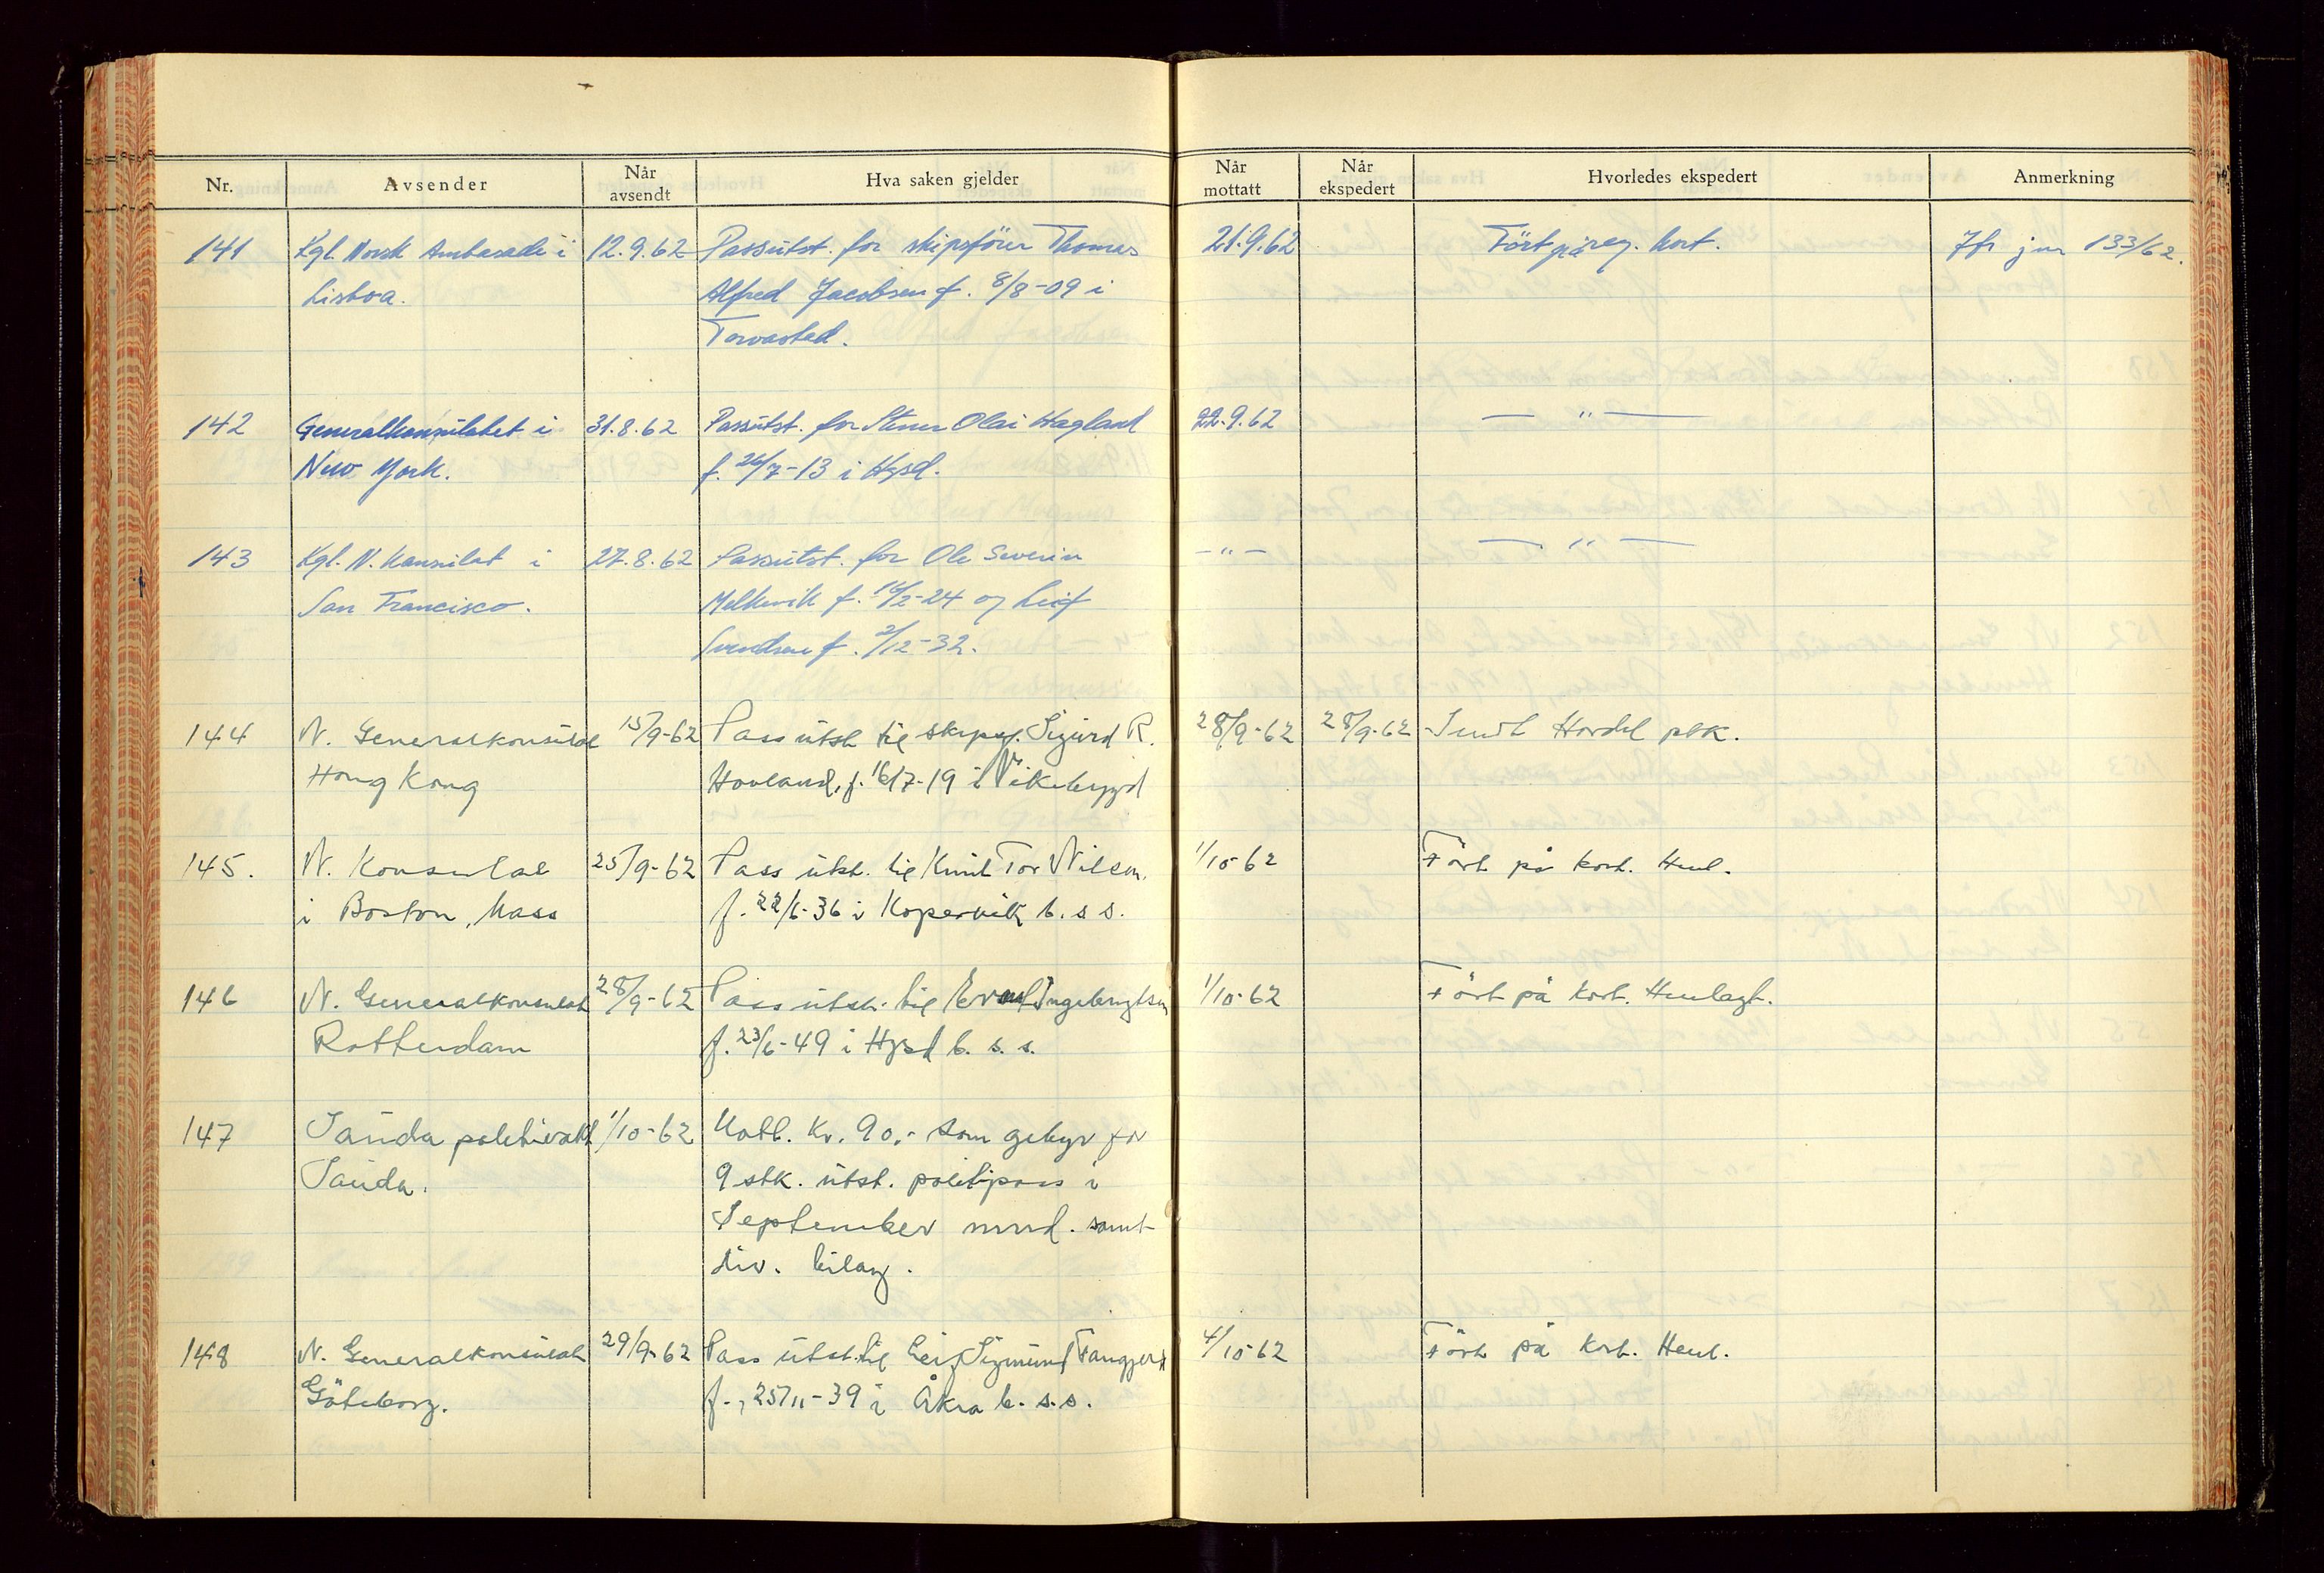 Nr. Avsender Når avsendt Hva saken gjelder Når mottatt Når ekspedert Hvorledes ekspedert Anmerkning
141 Kgl. Norsk Ambasade i 12.9.62 Passutst. for skipsfører Thomas 21.9.62 Ført på reg. kort. Jfr jnr 133/62.
Lisboa. Alfred Jacobsen f. 8/8-09 i
Torvastad.
142 Generalkonsulatet i 31.8.62 Passutst. for Olai Hagland 22.9.62 — " —
New York. f. 26/7-13 i Hgsd.
143 Kgl. N. Konsulat i 27.8.62 Passutst. for Ole Severin — " — — " —
San Francisco. Melkevik f. -24 og Leif
Svendsen f. 2/12-32.
144 N. Generalkonsulat 15/9-62 Pass utst til Sigurd R. 28/9-62 28/9-62 Sendt Hordal pbk.
Hong Kong Hovland, f. 16/7-19 i Vikebygd
145. N. Konsulat 25/9-62 Pass utst. til Knut Tor Nilsen, 1/10-62 Ført på kort. Henl.
i Boston, Mass f. 22/6-36 i Kopervik b. s s.
146 N. Generalkonsulat 28/9-62 Pass utst. til Ingebrigtsen 1/10-62 Ført på kort. Henlagt.
Rotterdam f. 23/6-49 i Hgsd b. s. s.
147 Sauda politivakt 1/10-62 Motl. Kr. 90,- som gebyr for
Sauda. 9 stk. utst. politipass i
September mnd. samt
div. bilag.
148 N. Generalkonsulat 29/9-62 Pass utst. til Leif Sigmund 4/10-62 Ført på kort. Henl.
Göteborg. f., 25/11-39 i Åkra b. s.s.